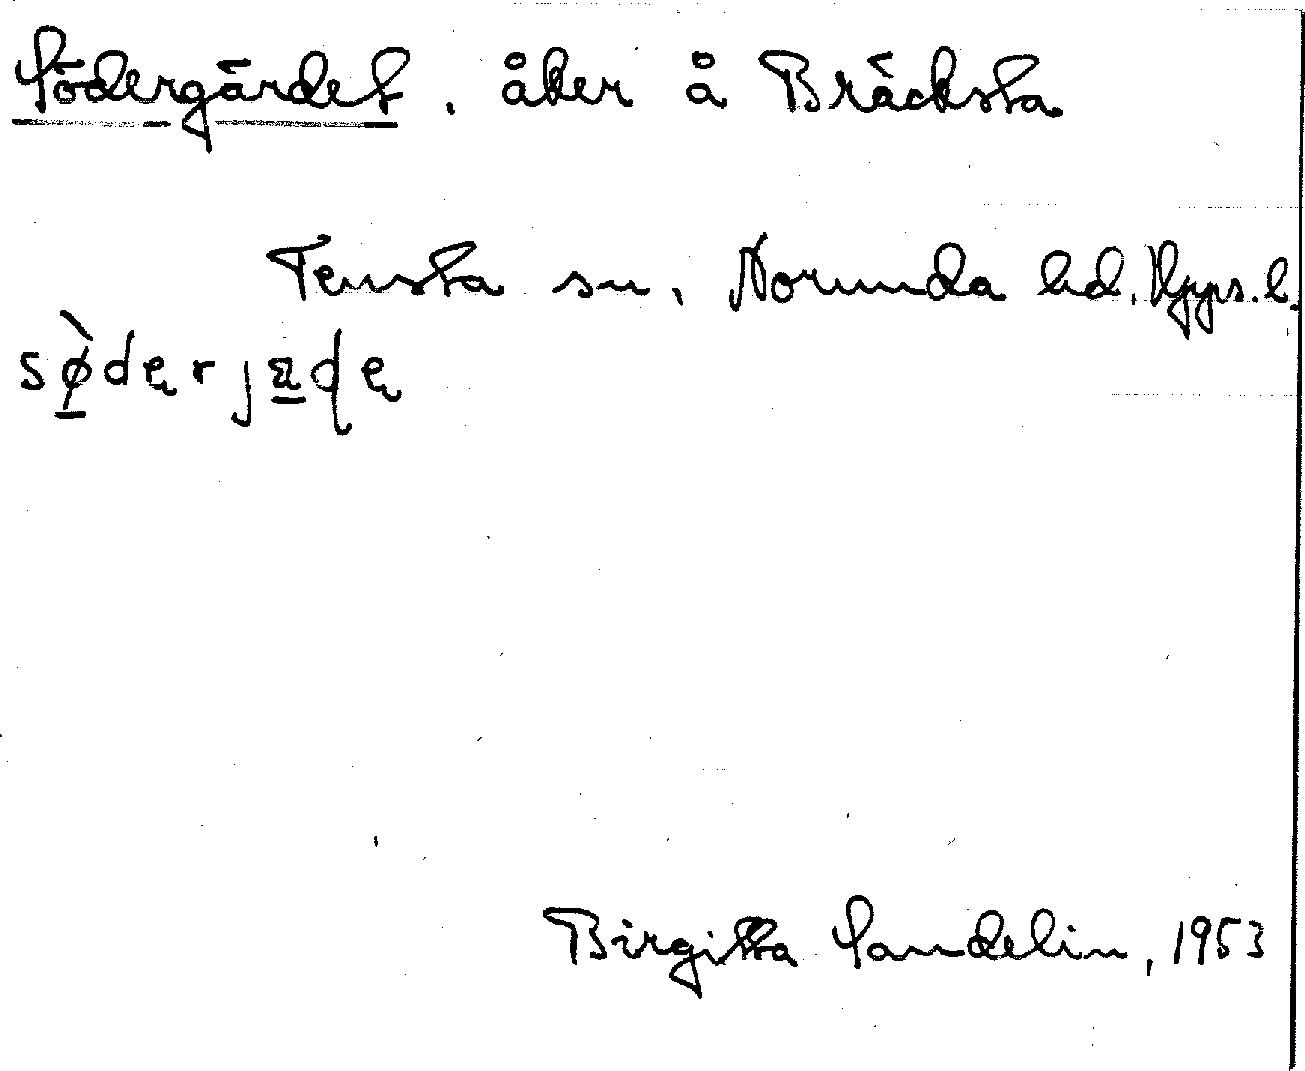 Södergärdet, åker å Bräcksta
Tensta sn, Norunda hd, Upps. l.
sø̀dęrjäḍę
Birgitta Sandelin, 1953